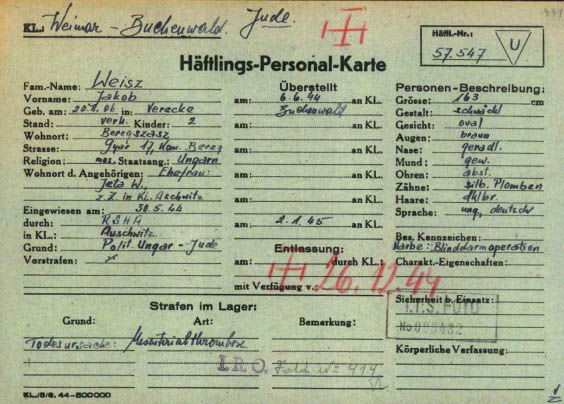 KL.: Weimar - Buchenwald. Jude.
Häftl.-Nr.:
57.547
U
Häftlings-Personal-Karte
Fam.-Name: Weisz
Vorname: Jakob
Geb. am: 20.8.06 in: Verecke
Stand: verh. Kinder: 2
Wohnort: Beregszasz
Strasse: Gyar 17, Kom. Bereg
Religion: mos. Staatsang.: Ungarn
Wohnort d. Angehörigen: Ehefrau:
Jeta W.,
z.Z. in KL. Aschwitz
Eingewiesen am: 30.5.44
durch: RSHA
in KL.: Auschwitz
Grund: Polit. Ungar - Jude
Vorstrafen:
Überstellt
am: 6.6.44 an KL.
Buchenwald
am: an KL.
am: an KL.
am: an KL.
am: an KL.
am: 2.1.45 an KL.
Entlassung:
am: durch KL.:
mit Verfügung v.: 26.12.44
Personen-Beschreibung:
Grösse: 163 cm
Gestalt: schwächl
Gesicht: oval
Augen: braun
Nase: geradl.
Mund: gew.
Ohren: abst.
Zähne: silb. Plomben
Haare: dklbr.
Sprache: ung, deutsch
Bes. Kennzeichen:
Narbe: Blinddarmoperation
Charakt.-Eigenschaften:
Sicherheit b. Einsatz:
I.T.S. FOTO
No
Körperliche Verfassung:
Strafen im Lager:
Grund: Art: Bemerkung:
Todesursache:
I.R.O. Fold No 414
KL/5/6. 44-500000